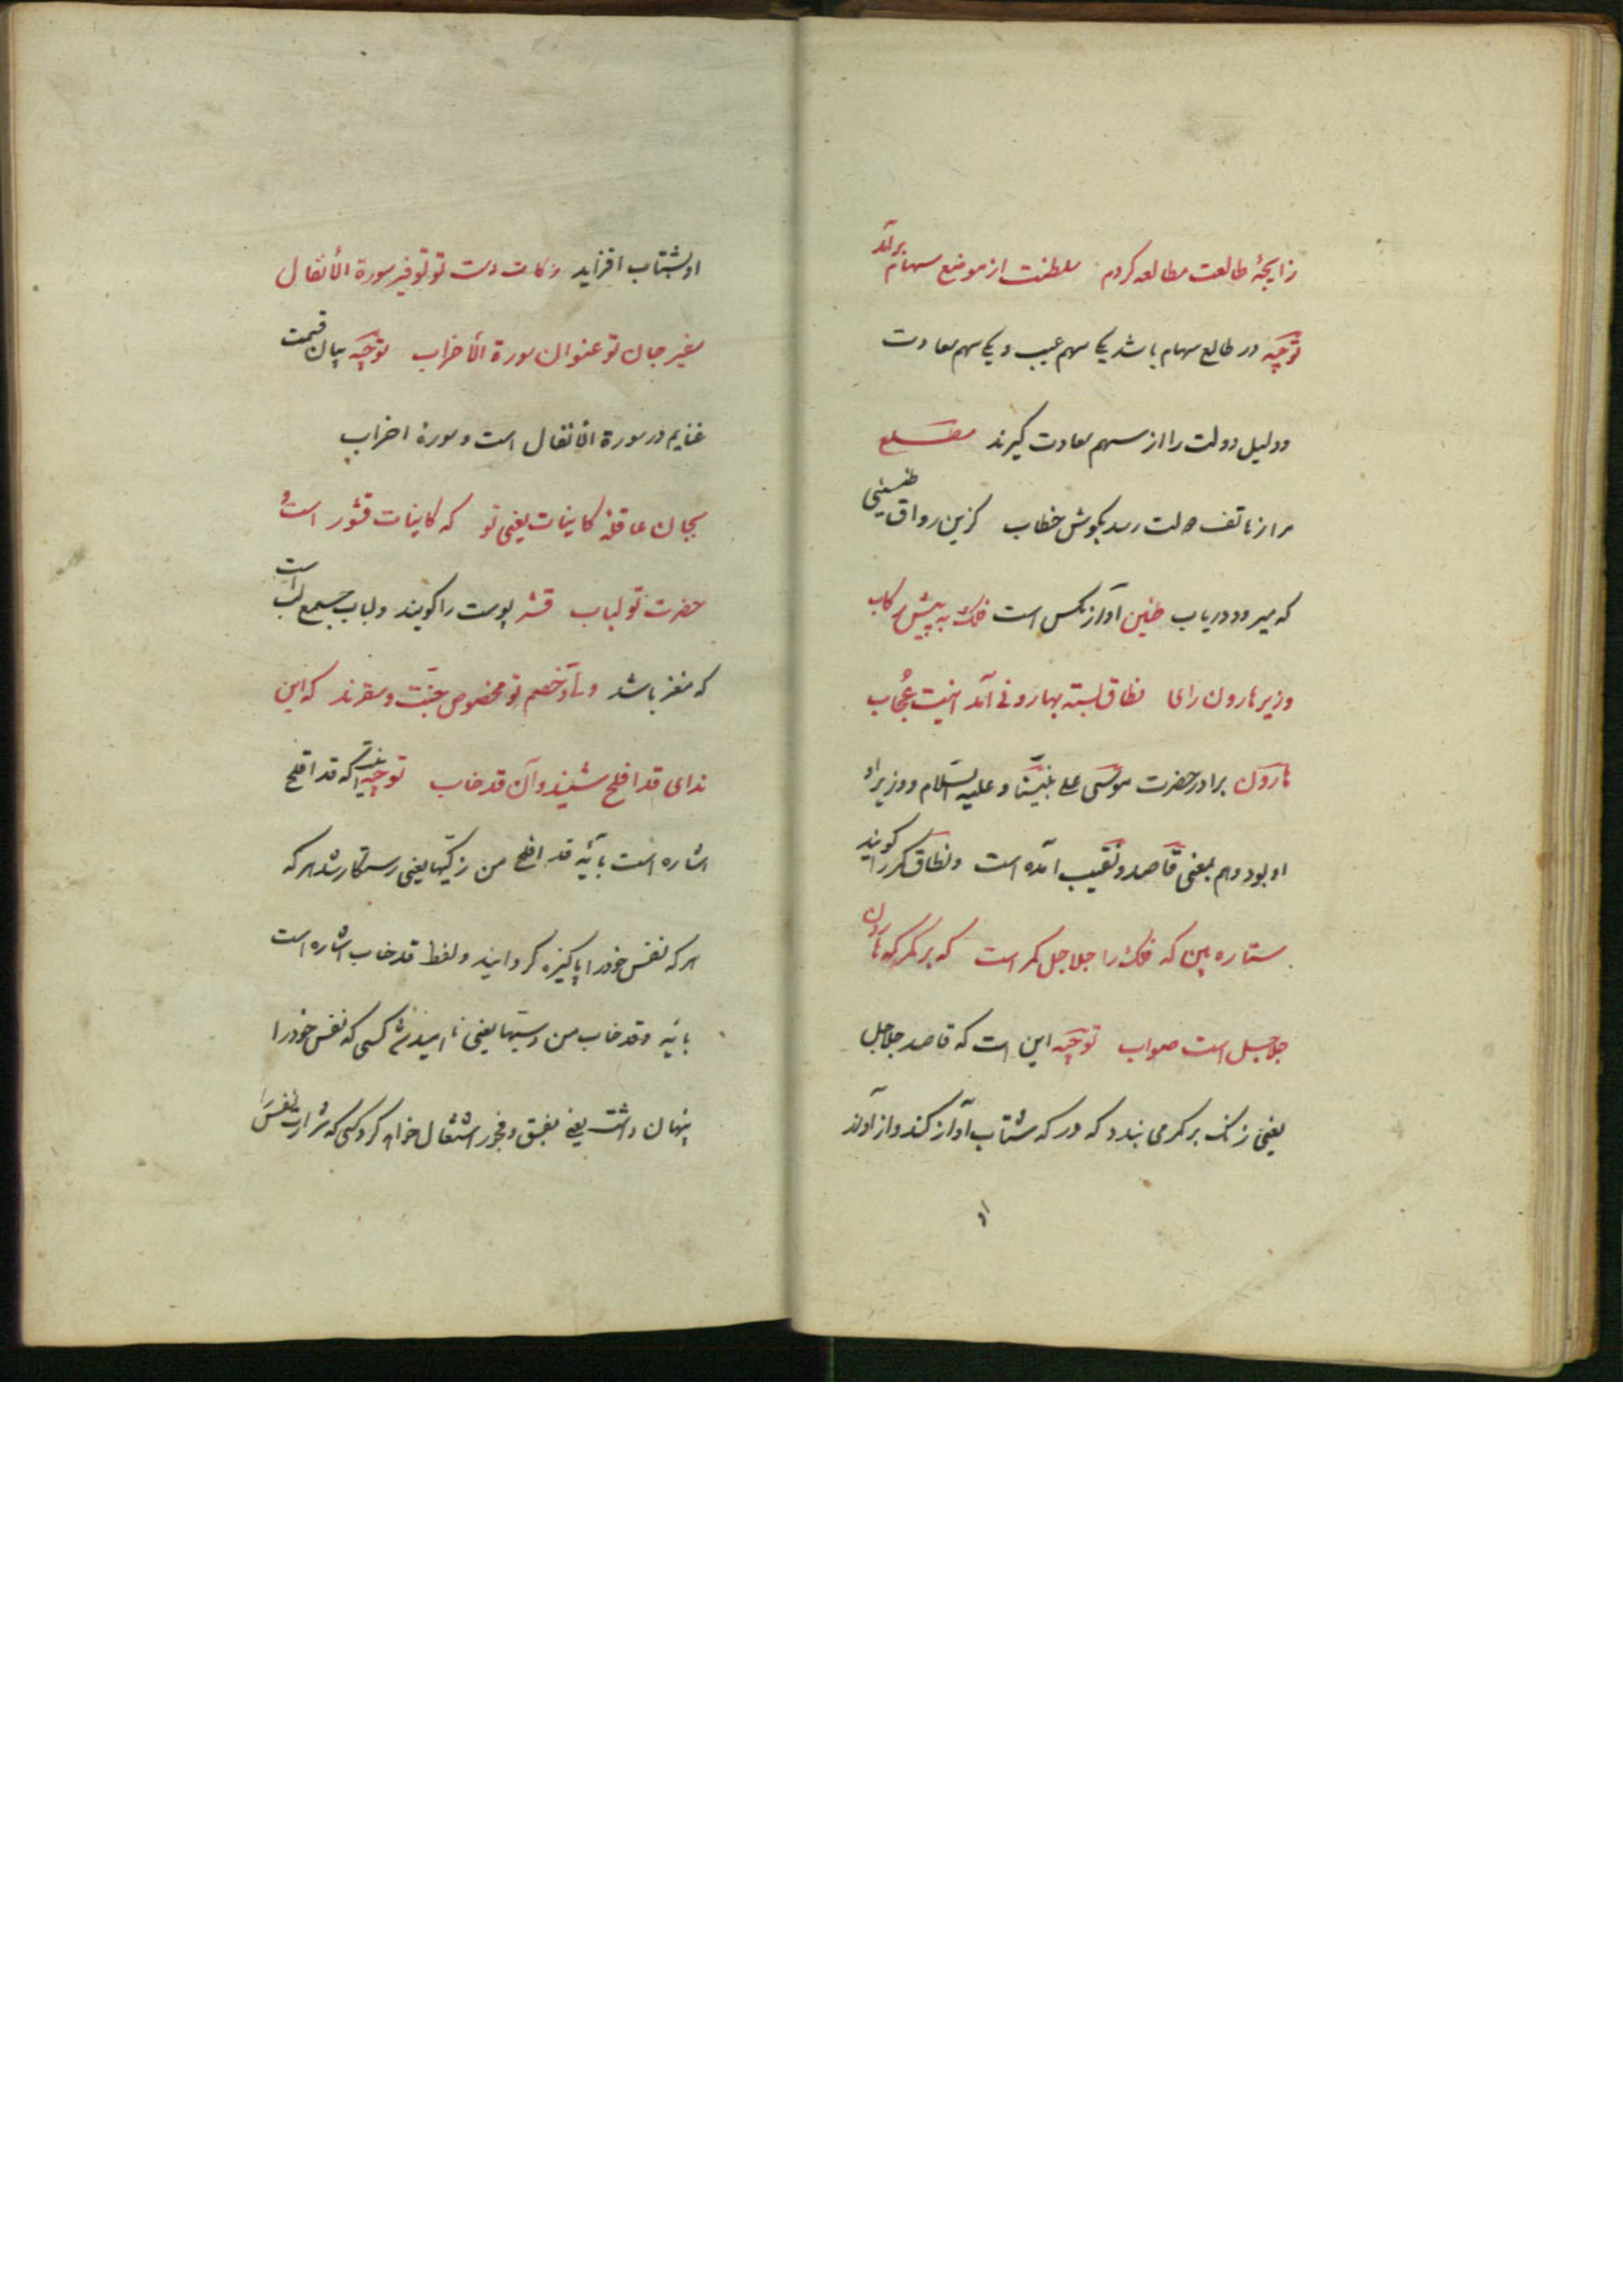 زایجهٔ طالعت مطالعه کردم سلطنت از موضع سهام برآمد
توجیه در طالع سهام باشد یکی سهم غیب و یکی سهم سعادت
و دلیل دولت را از سهم سعادت گیرند مطلع
مرا ز هاتف همت رسد بگوش خطاب کزین رواق طنینی
که میرود دریاب طنین آواز مگس است فلک به پیش رکاب
وزیر هارون رای نطاق بسته بهارونی آمد اینت عُجاب
هارون برادر حضرت موسی علی نبیّنا و علیه السّلام و وزیر او
او بود و هم بمعنی قاصد و نقیب آمده است و نطاق کمر را گویند
ستاره بین که فلک را جلاجل کمر است که بر کمر که هارون
جلاجل است صواب توجیه این است که قاصد جلاجل
یعنی زنگ بر کمر می بندد که در که شتاب آواز کند و از آواز
او
او بشتاب افزاید زکات دست تو توفیر سورة الأنفال
سفیر جان تو عنوان سورة الأحزاب توجیه بیان قسمت
غنایم در سورة الأنفال است و سورهٔ احزاب
بجان عاقلهٔ کاینات یعنی تو که کاینات قشور است و
حضرت تو لباب قشر پوست را گویند و لباب جمع لب است
که مغز باشد ولی و خصم تو مخصوص جنّت و سقرند که این
ندای قد افلح شنید و آن قد خاب توجیه اینست که قد افلح
اشاره است بآیه قد افلح من زکّیها یعنی رستکار شد هر که
هر که نفس خود را پاکیزه کردانید و لفظ قد خاب اشاره است
بآیه و قد خاب من دسّیها یعنی ناامید شد کسی که نفس خود را
پنهان داشت یعنی بفسق و فجور اشتغال خواهد کرد کسی که شرارت نفس را